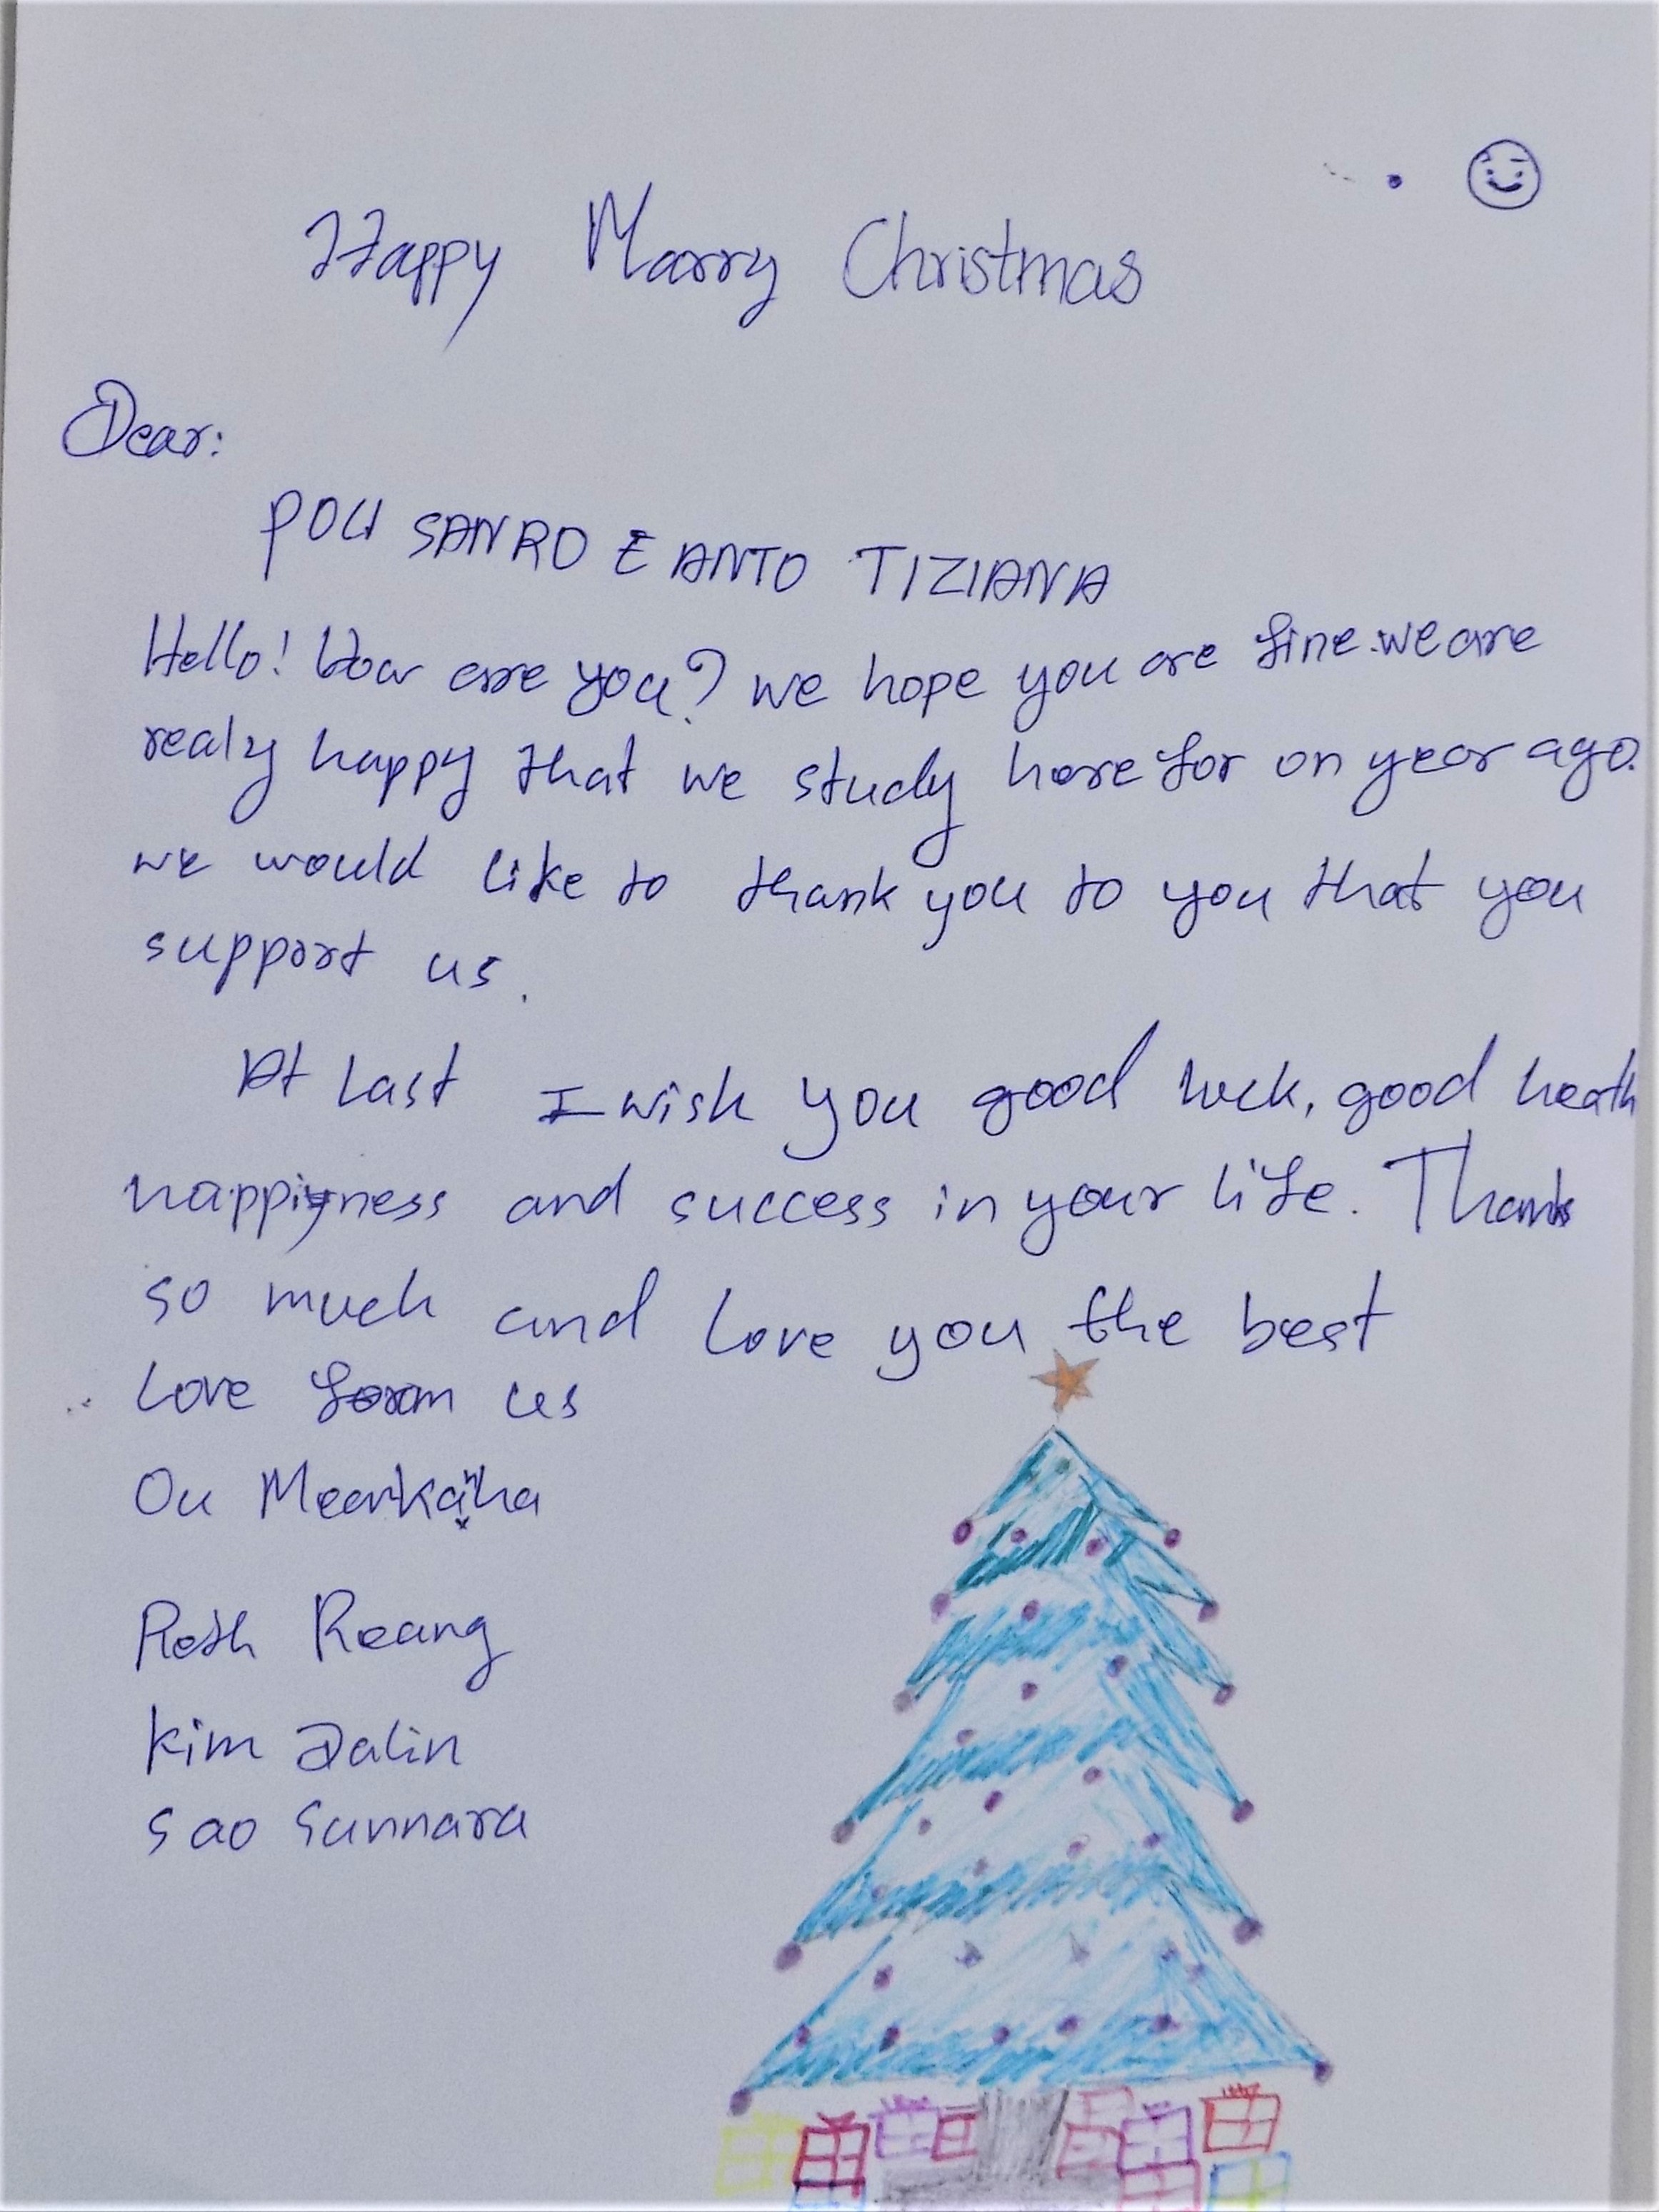 Happy Marry Christmas
Dear:
POLI SANRO E ANTO TIZIANA
Hello! How are you? we hope you are fine. we are
realy happy that we study here for on year ago.
we would like to thank you to you that you
support us.
At Last I wish you good luck, good heath
happiyness and success in your life. Thanks
so much and love you the best
Love form us
Ou
Roth Reang
Kim Dalin
Sao Sunnara